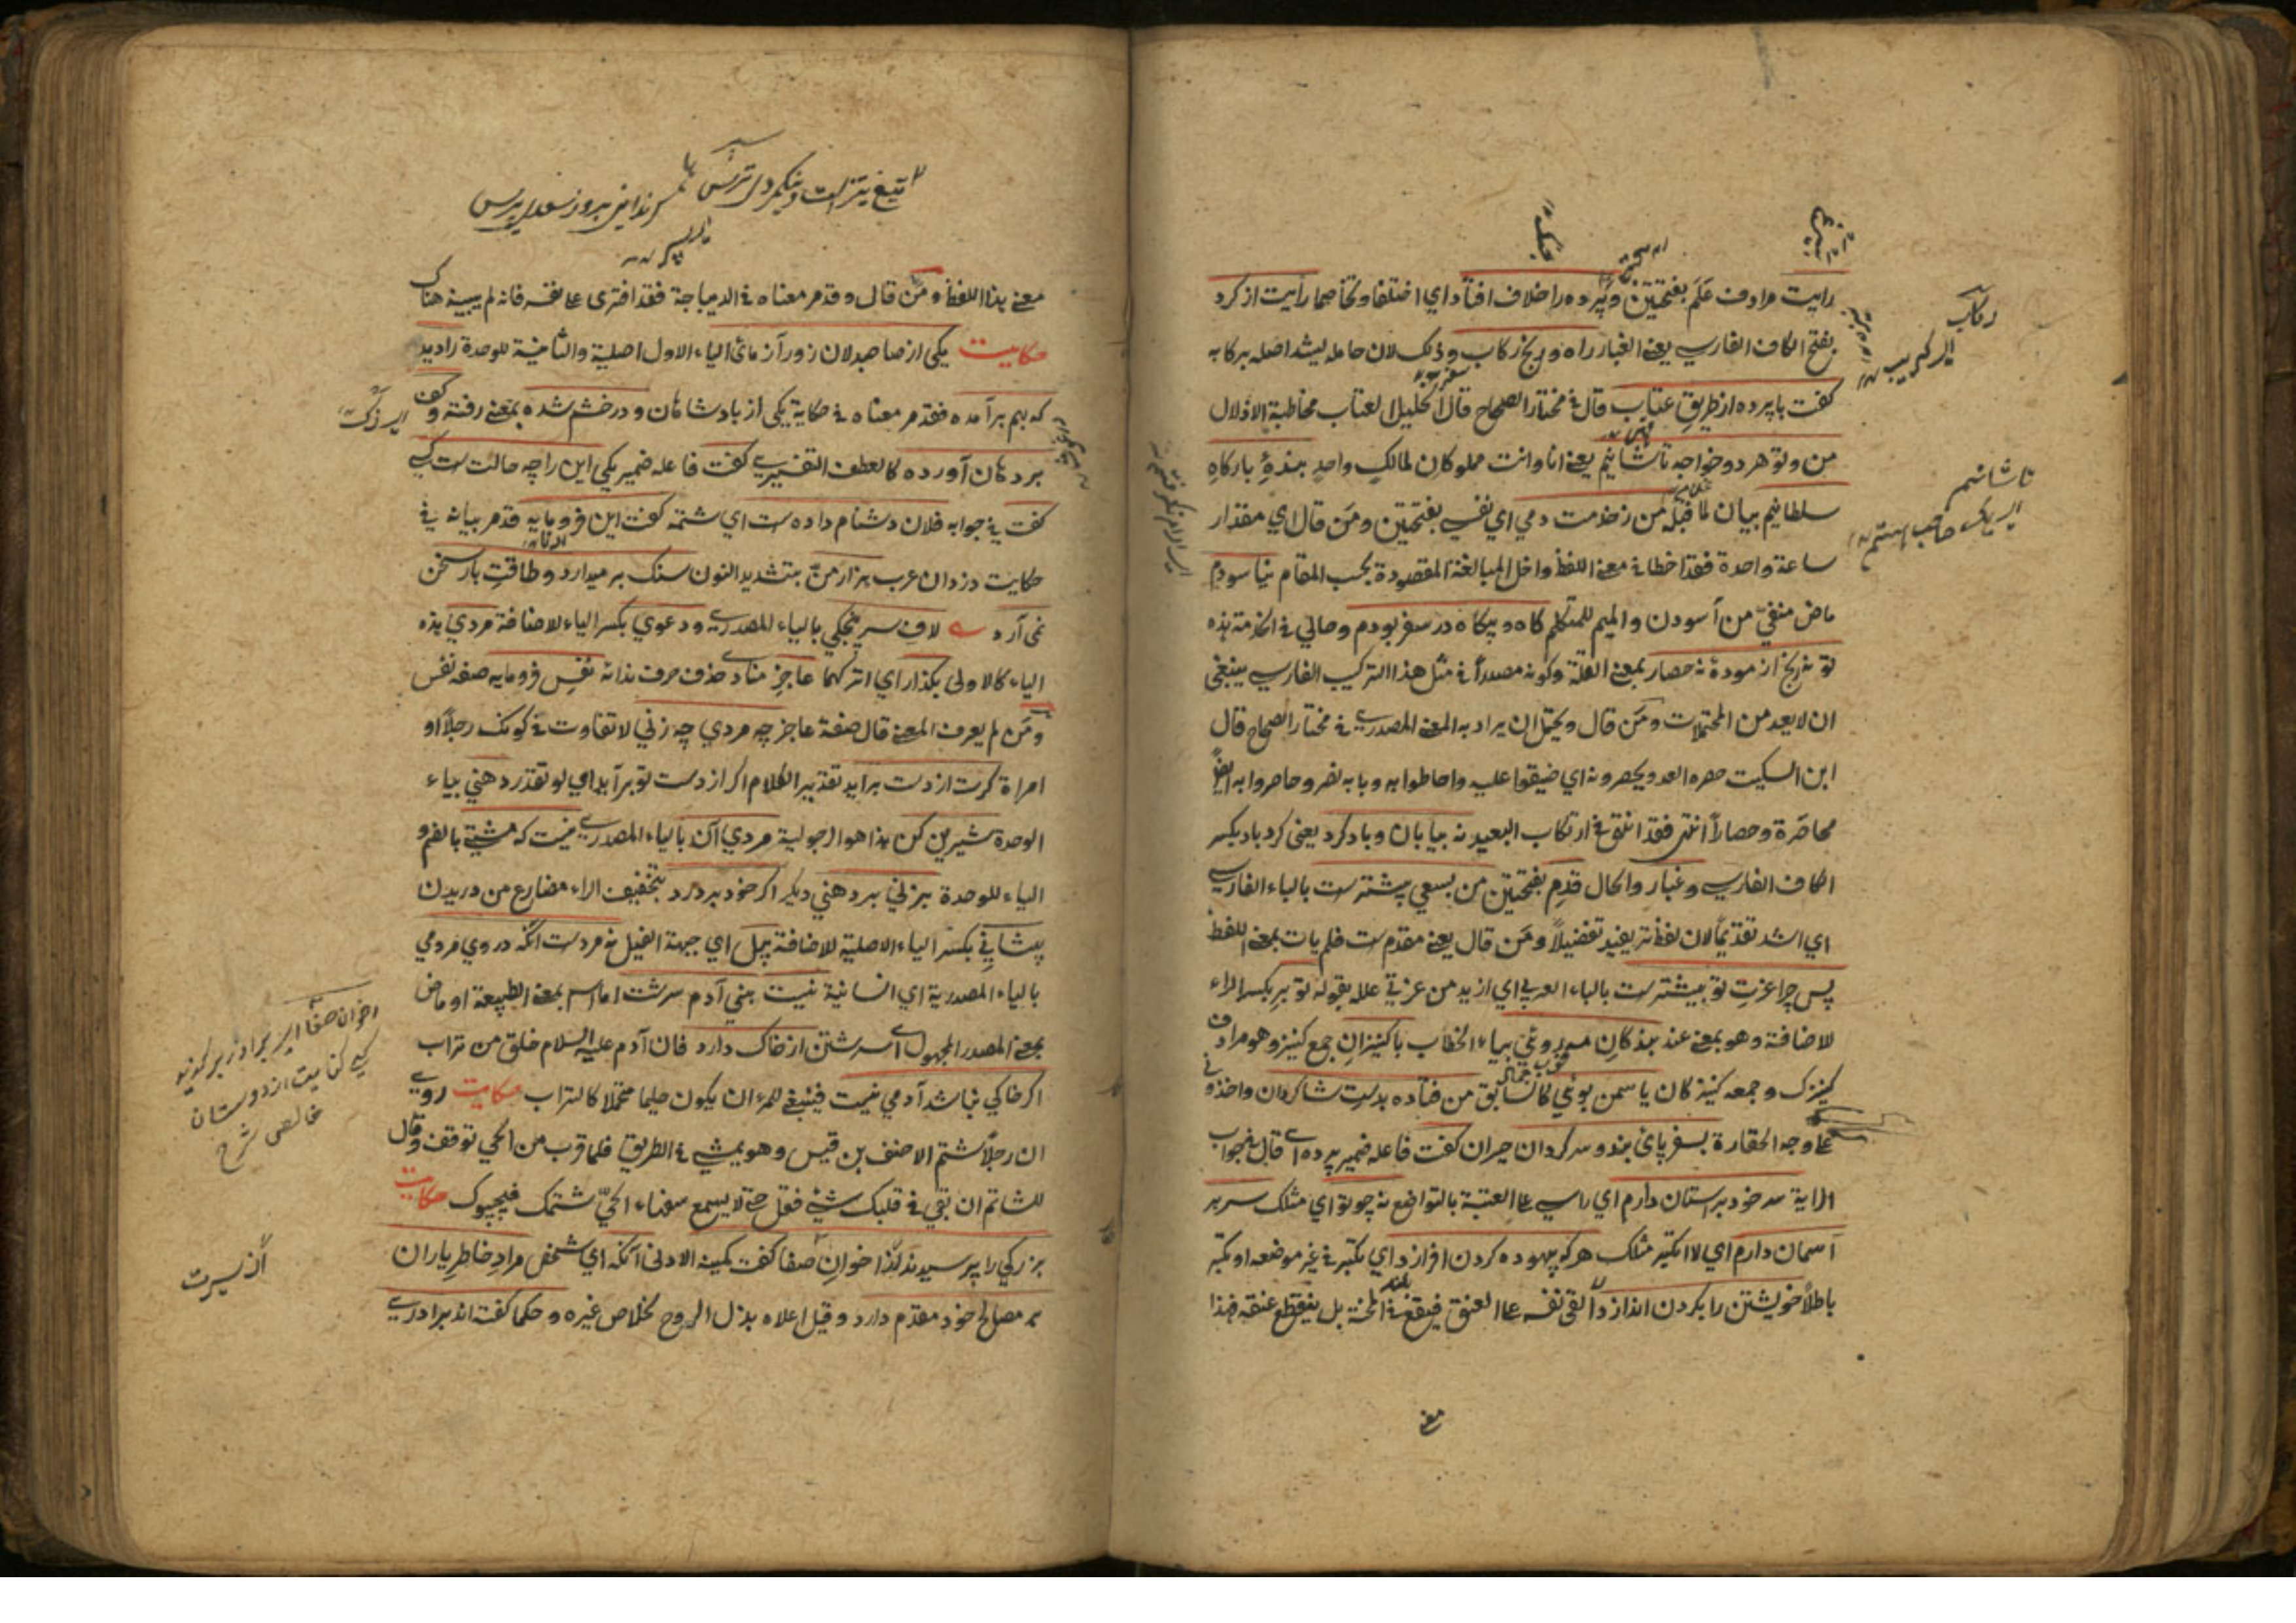 رايت مرادف علم بفتحتين وپرده را خلاف افتاد اي اختلفا وتخاصما رايت از كرد
بفتح الكاف الفارسي يعني الغبار راه ورنج ركاب وذلك لان حامله ليشد اصله بركابه
كفت با پرده از طريق عتاب قال في مختار الصحاح قال الخليل العتاب مخاطبة الادلال
من وتو هر دو خواجه تاشانيم يعني انا وانت مملوكان لمالك واحد بندهٔ باركاه
سلطانيم بيان لما قبله من زخدمت دمي اي نفسي بفتحتين ومن قال اي مقدار
ساعة واحدة فقد اخطا في معنى اللفظ واخل المبالغة المقصودة بحسب المقام نياسودم
ماض منفي من آسودن والميم للمتكلم كاه وبيكاه در سفر بودم وحالي في الخدمة هذه
تو نه رنج ازمودهٔ نه حصار بمعنى القلعة وكونه مصدراً في مثل هذا التركيب الفارسي ينبغي
ان لا يعد من المحتملات ومن قال ويحتمل ان يراد به المعنى المصدري في مختار الصحاح قال
ابن السكيت حصره العدو يحصرونه اي ضيقوا عليه واحاطوا به وبابه نصر وحاصروا به ايضاً
محاصرة وحصاراً انتهى فقد اتفق في ارتكاب البعيد نه بيابان وباد كرد يعني كرد باد بكسر
الكاف الفارسي وغبار والحال قدم بفتحتين من بسعي پيشترست بالباء الفارسي
اي اشد تقديماً لان لفظ تر يفيد تفضيلاً ومن قال يعني مقدم ست فلم يات بمعنى اللفظ
پس چرا عزت تو بيشترست بالباء العربي اي ازيد من عزتي علله بقوله تو بر بكسر الراء
للاضافة وهو بمعنى عند بندكان مه رويي بياء الخطاب با كنيزان جمع كنيز وهو مرادف
كنيزك وجمعه كنيزكان ياسمن بويي كالسابق من فتاده بدست شاكردان واخذوني
على وجه الحقارة بسفر پاي بند وسركردان حيران كفت فاعله ضمير پرده اي قال في جواب
الراية سر خود بر استان دارم اي راسي على العتبة بالتواضع نه چو تو اي مثلك سر بر
آسمان دارم اي لا اتكبر مثلك هر كه بيهوده كردن افرازد اي يتكبر في غير موضعه او يتكبر
باطلاً خويشتن را بكردن اندازد القى نفسه على العنق فيقع في المحنة بل ينقطع عنقه فهذا
معنى
ركاب
تاشانيم
معنى هذا اللفظ ومن قال وقد مر معناه في الديباجة فقد افترى على نفسه فانه لم يبينه هناك
حكايت يكي از صاحبدلان زورآزمائي الياء الاول اصلية والثانية للوحدة را ديد
كه بهم برآمده فقد مر معناه في حكاية يكي از بادشاهان ودر خشم شده بمعنى رفته وكف
بر دهان آورده كالعطف التفسيري كفت فاعله ضمير يكي اين را چه حالت ست كسي
كفت في جوابه فلان دشنام داده ست اي شتمه كفت اين فرومايه قد مر بيانه في
حكايت دزدان عرب هزار من بتشديد النون سنك بر ميدارد وطاقت بار سخن
نمى آرد لاف سرپنجكي بالياء المصدرية ودعوي بكسر الياء للاضافة مردي هذه
الياء كالاولى بكذار اي اتركهما عاجز منادى حذف حرف ندائه نفس فرومايه صفة نفس
ومن لم يعرف المعنى قال صفة عاجز چه مردي چه زني لا تفاوت في كونك رجلاً او
امراة كرت از دست برايد تقدير الكلام اكر از دست تو برآيد اي لو تقدر دهني بياء
الوحدة شيرين كن هذا هو الرجولية مردي آن بالياء المصدري نيست كه مشتي بالضم و
الياء للوحدة بزني بر دهني ديكر اكر خود بردرد بتخفيف الراء مضارع من دريدن
پيشاني بكسر الياء الاصلية للاضافة پيل اي جبهة الفيل نه مردست آنكه در وي مردمي
بالياء المصدرية اي انسانية نيست بني آدم سرشت اما اسم بمعنى الطبيعة او ماض
بمعنى المصدر المجهول اي سرشتن از خاك دارد فان آدم عليه السلام خلق من تراب
اكر خاكي نباشد آدمي نيست فينبغي للمرء ان يكون حليما متحملا كالتراب حكايت روي
ان رجلاً شتم الاحنف بن قيس وهو يمشي في الطريق فلما قرب من الحي توقف وقال
للشاتم ان بقي في قلبك شيئ فقل حتى لا يسمع سفهاء الحي شتمك فيجيبوك حكايت
بزركي را پرسيدند از اخوان صفا كفت كمينه الادنى آنكه اي شخص مراد خاطر ياران
بر مصالح خود مقدم دارد وقيل اعلاه بذل الروح لخلاص غيره وحكما كفته اند برادري
اخوان صفا
كنايت از دوستان
خالص شرح